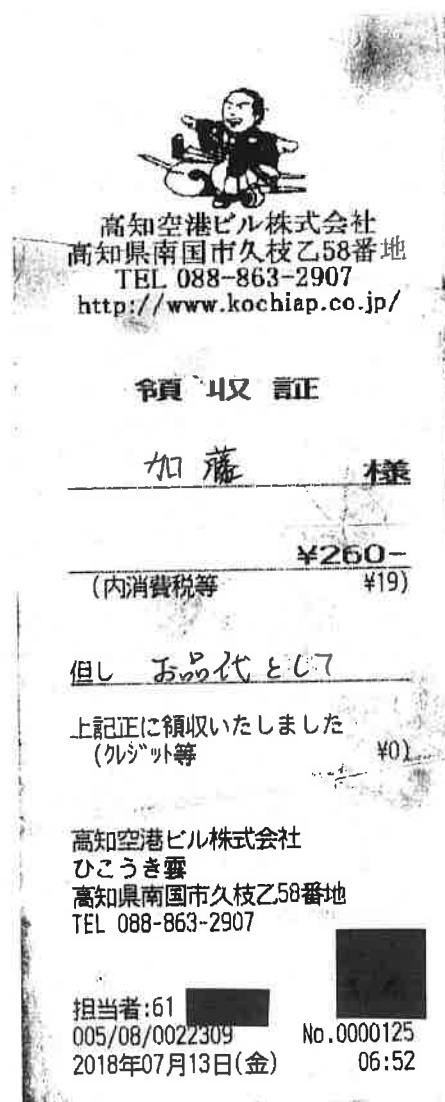 高知空港ビル株式会社
高知県南国市久枝乙58番地
TEL 088-863-2907
http://www.kochiap.co.jp/
領収証
加藤 様
¥260-
(内消費税等 ¥19)
但し お品代として
上記正に領収いたしました
(クレジット等 ¥0)
高知空港ビル株式会社
ひこうき雲
高知県南国市久枝乙58番地
TEL 088-863-2907
担当者:61
005/08/0022309 No.0000125
2018年07月13日(金) 06:52